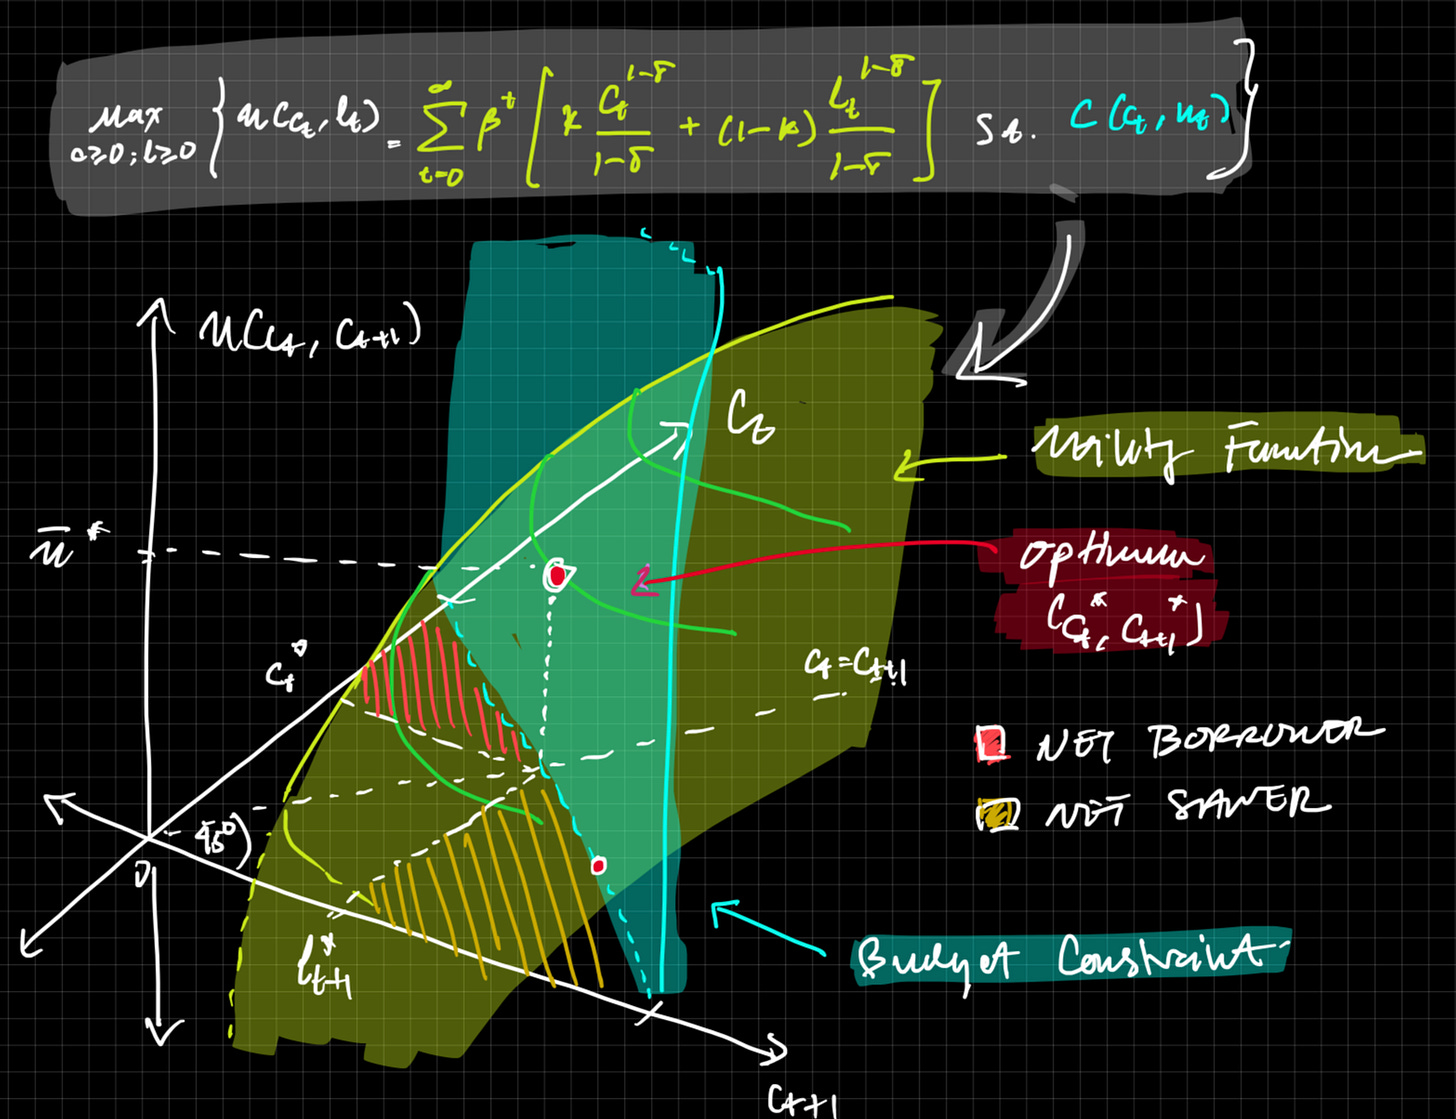 max { u(c_t, l_t) = ∑_{t=0}^{∞} β^t [ κ C_t^{1-σ}/(1-σ) + (1-κ) l_t^{1-σ}/(1-σ) ] s.t. C(c_t, n_t) }
c≥0; l≥0
u(c_t, c_{t+1})
C_t
Utility Function
ū*
optimum
(c_t*, c_{t+1}*)
c_t*
c_t = c_{t+1}
NET BORROWER
NET SAVER
45°
0
l*_{t+1}
Budget Constraint
c_{t+1}